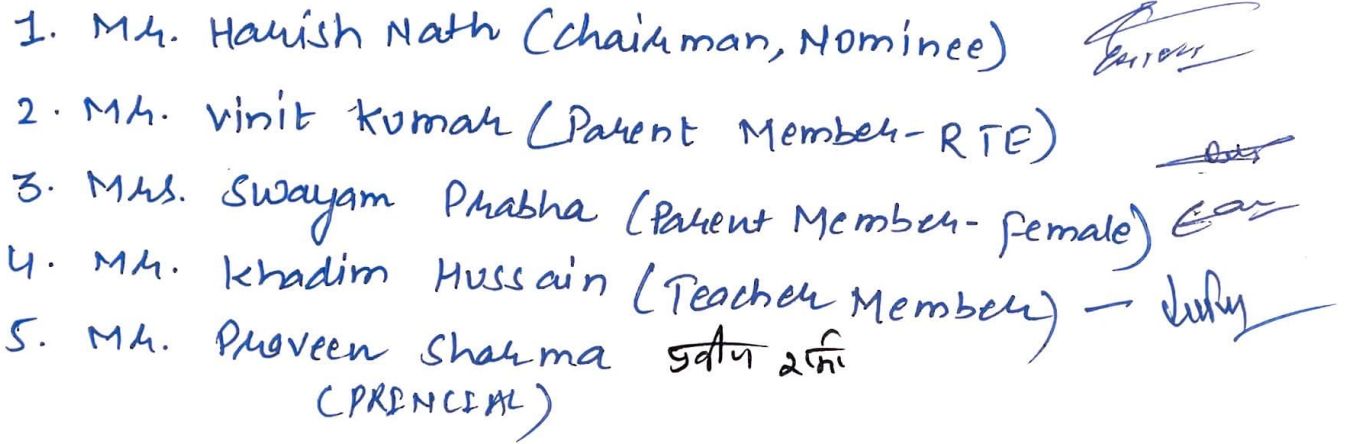 1. Mr. Harish Nath (Chairman, Nominee)
2. Mr. Vinit Kumar (Parent Member-RTE)
3. Mrs. Swayam Prabha (Parent Member-female)
4. Mr. Khadim Hussain (Teacher Member) -
5. Mr. Praveen Sharma प्रवीण शर्मा
(PRINCIAL)